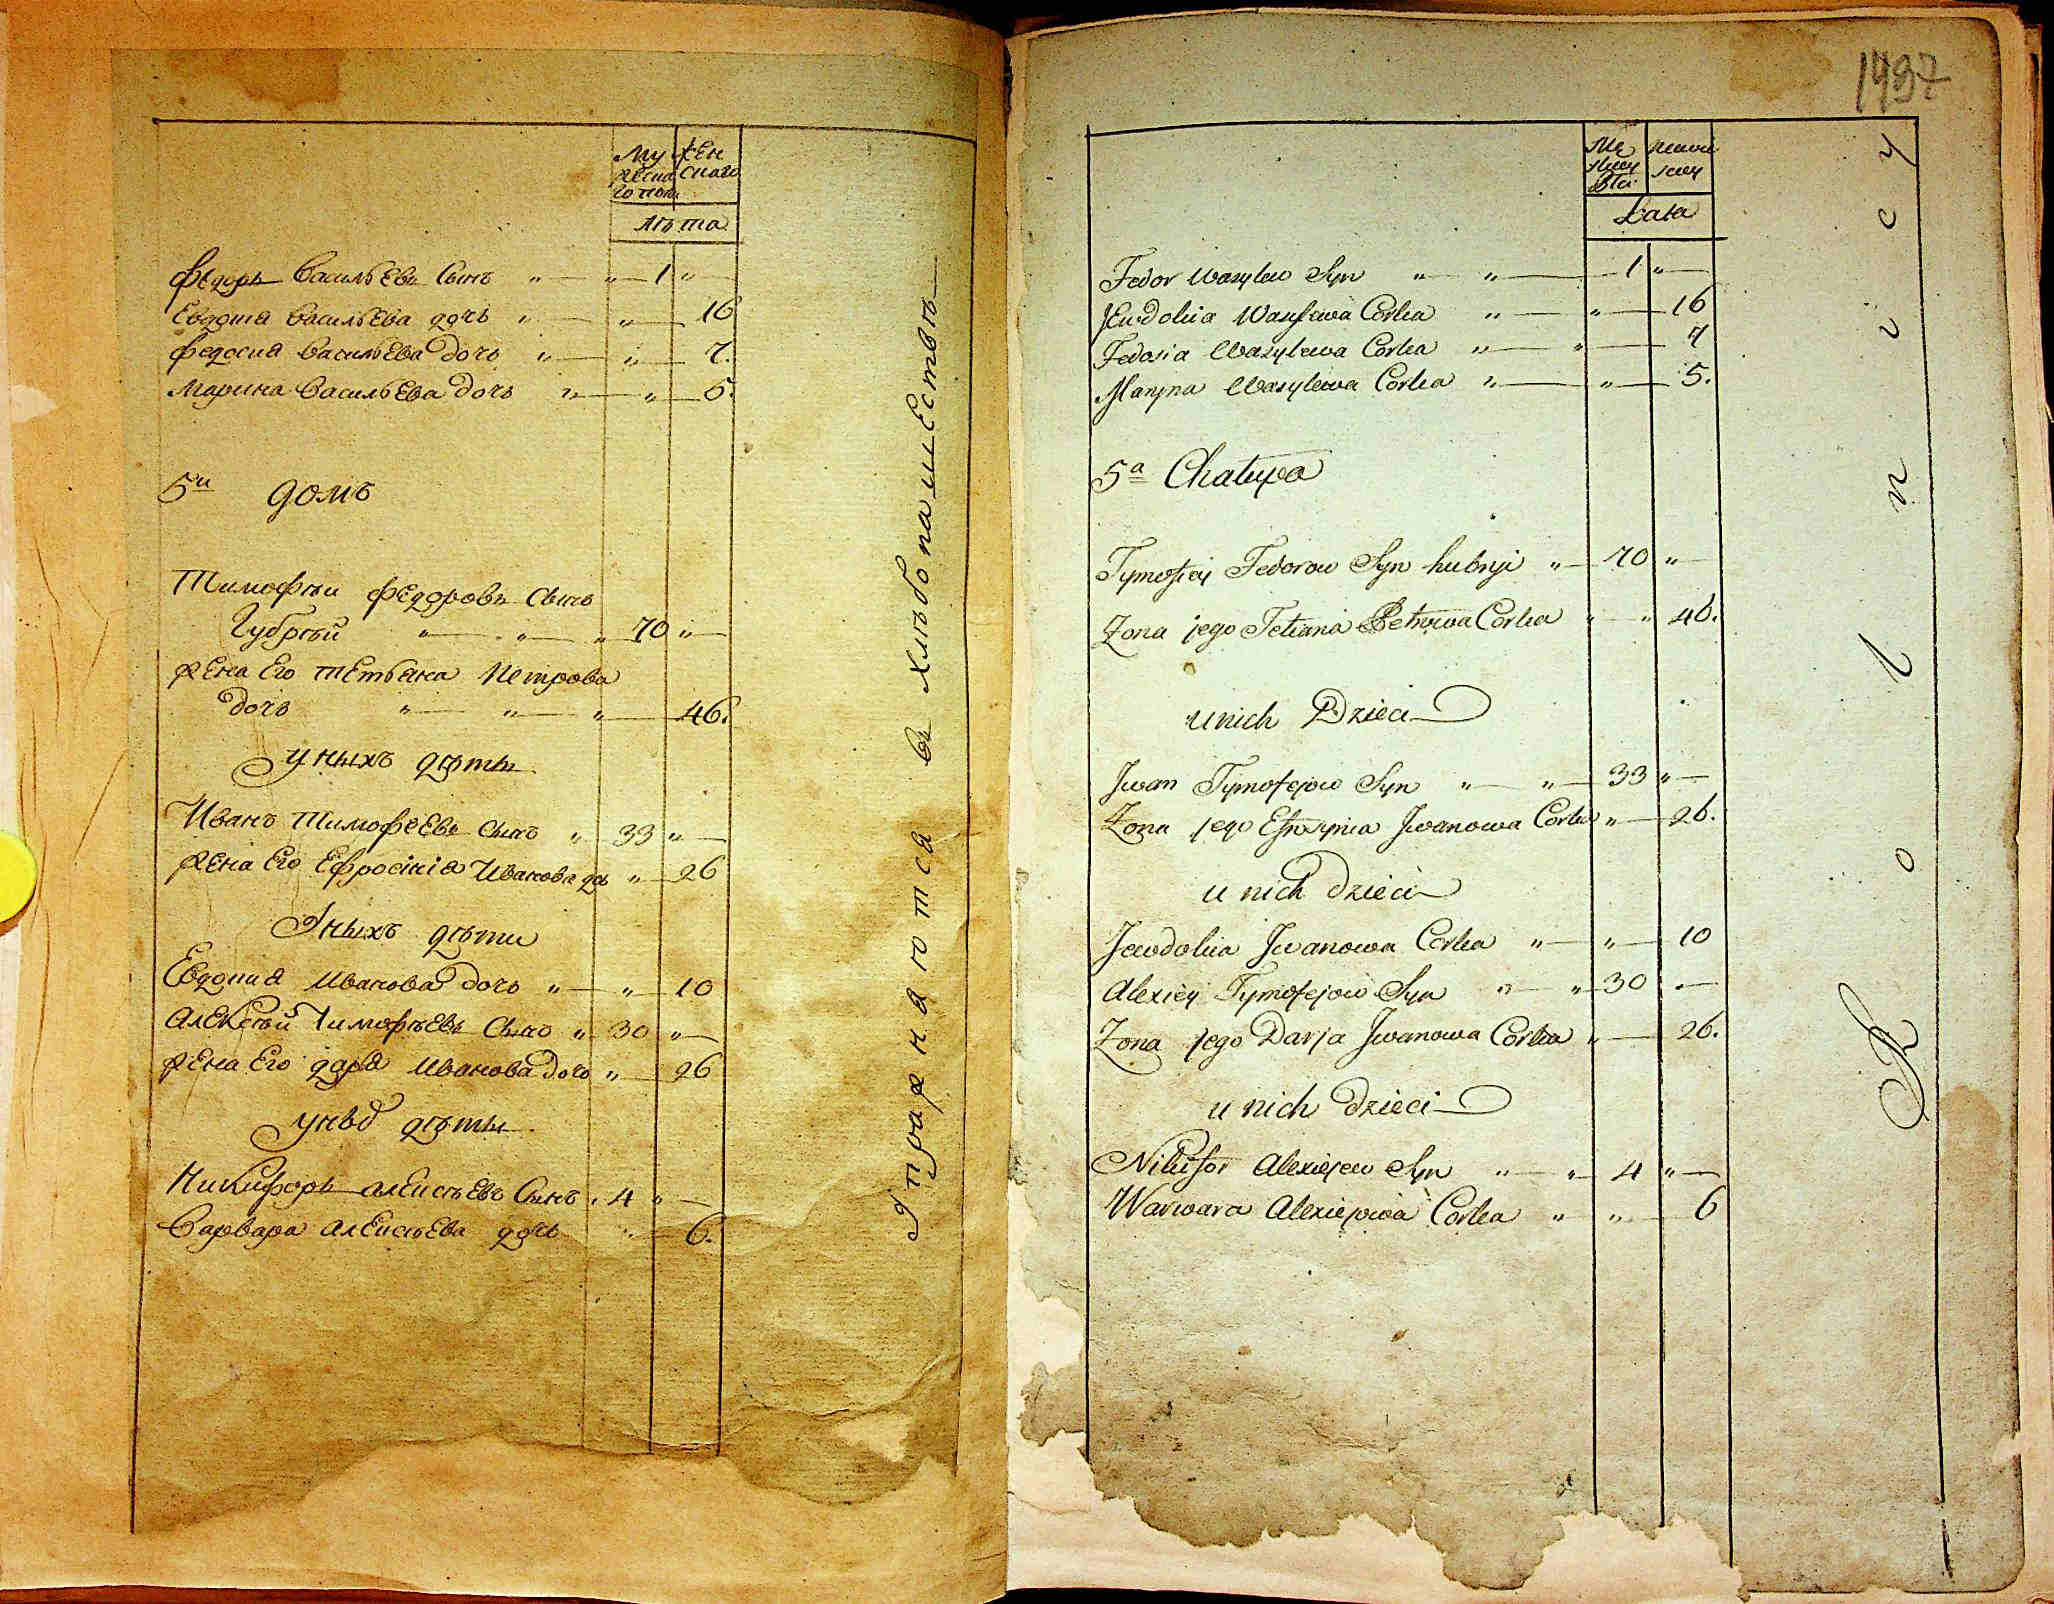 Му жен
жеска скаго
го пола
лѣта
Федоръ Васильевъ Сынъ „ „ 1 „
Евдокиа Васильева дочь „ „ 16
Федосиа Васильева дочь „ „ 7.
Марина Васильева дочь „ „ 5.
5й домъ
Тимофѣи Федоровъ Сынъ
Губрѣй „ „ „ 70 „
жена Его тетьяна Петрова
дочь „ „ „ 46.
у ныхъ дѣты
Иванъ Тимофеевъ Сынъ „ 33 „
жена Его Ефросініа Иванова до „ 26
У ныхъ дѣти
Евдокиа Иванова дочь „ „ 10
Алексѣй Тимофѣевъ Сынъ „ 30 „
жена Его даря Иванова дочь „ 26
дѣты
Никифоръ алексѣевъ Сынъ „ 4 „
Варвара алексѣева дочь „ 6.
Упражняются въ хлѣбопашествѣ
1497
Mę zkiey płci
Lata
Fedor Wasylew Syn „ „ 1 „
Jewdokia Wasylewa Corka „ „ 16
Fedosia Wasylewa Corka „ „ 7
Maryna Wasylewa Corka „ „ 5.
5a Chałupa
Tymofiey Fedorow Syn hubryi „ 70 „
Zona jego Tetiana Petrowa Corka „ „ 46.
u nich Dzieci
Jwan Tymofejow Syn „ „ 33 „
Zona jego Efrozynia Jwanowa Corka „ 26.
u nich dzieci
Jewdokia Jwanowa Corka „ „ 10
Alexiey Tymofejow Syn „ „ 30 „
Zona jego Darja Jwanowa Corka „ 26.
u nich dzieci
Nikifor Alexiejew Syn „ „ 4 „
Warwara Alexiejowa Corka „ „ 6
Rolnicy